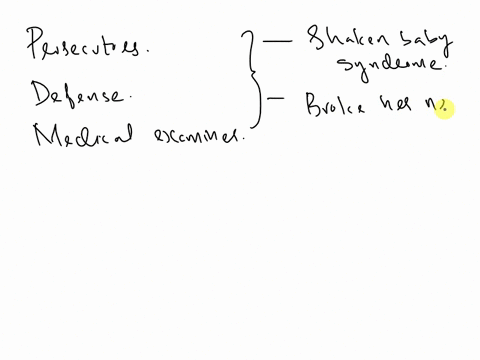 Persecutores.
Defense.
Medical examiner.
— Shaken baby
syndrome.
— Broke her n